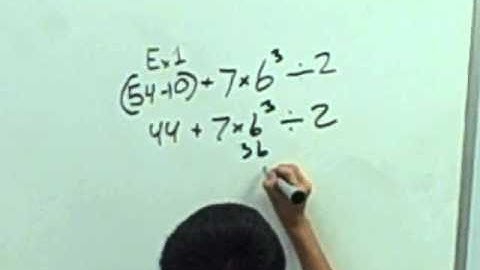 Ex 1
(54-10) + 7 × 6³ ÷ 2
44 + 7 × 6³ ÷ 2
36